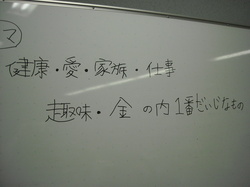 マ
健康・愛・家族・仕事
趣味・金の内1番だいじなもの